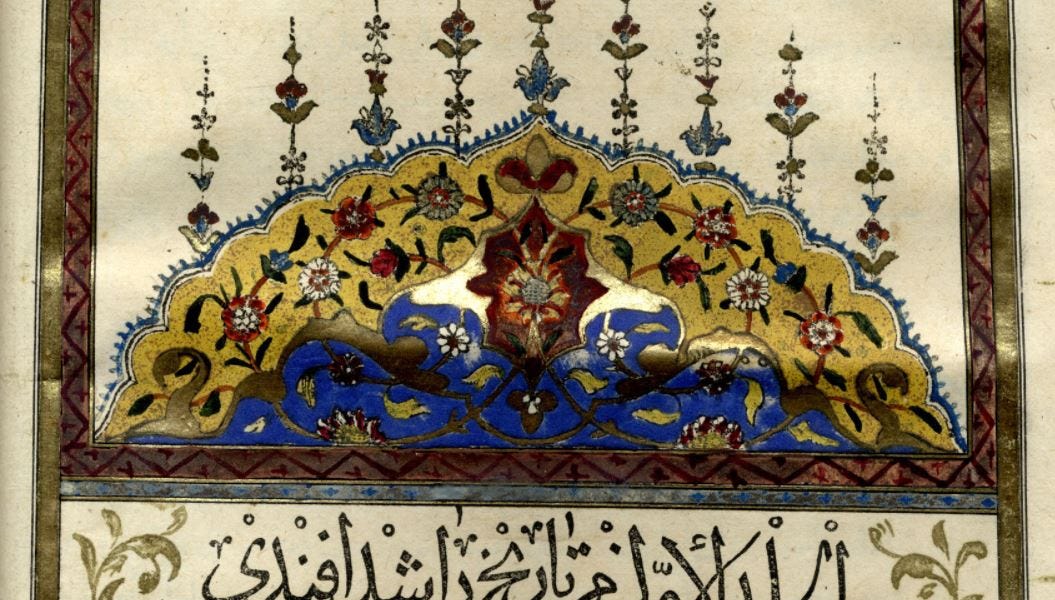 الجلد الأوّل من تاريخ راشد افندي